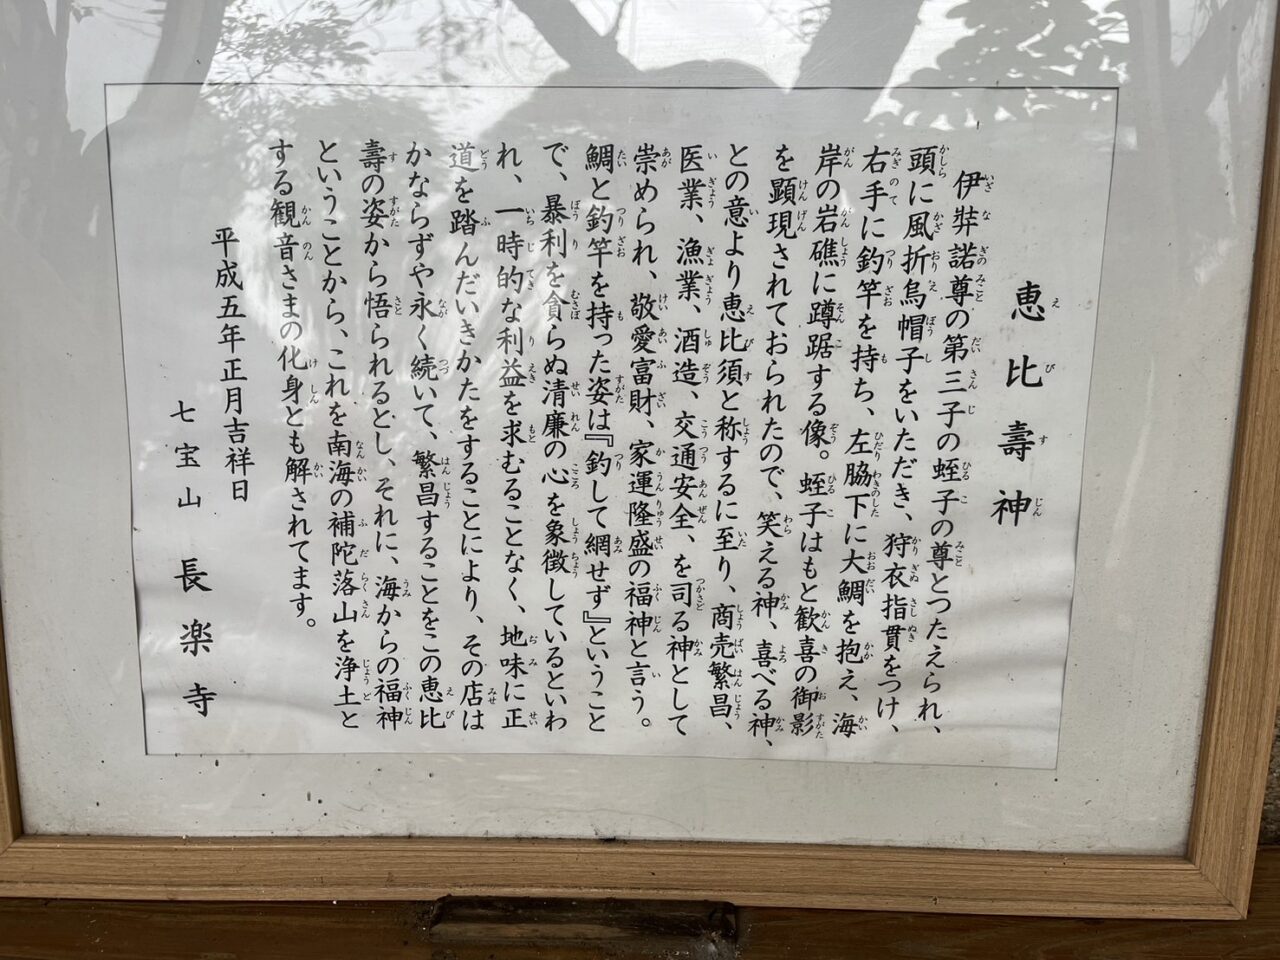 恵比壽神
伊弉諾尊の第三子の蛭子の尊とつたえられ、
頭に風折烏帽子をいただき、狩衣指貫をつけ、
右手に釣竿を持ち、左脇下に大鯛を抱え、海
岸の岩礁に蹲踞する像。蛭子はもと歓喜の御影
を顕現されておられたので、笑える神、喜べる神、
との意より恵比須と称するに至り、商売繁昌、
医業、漁業、酒造、交通安全、を司る神として
崇められ、敬愛富財、家運隆盛の福神と言う。
鯛と釣竿を持った姿は『釣して網せず』ということ
で、暴利を貪らぬ清廉の心を象徴しているといわ
れ、一時的な利益を求むることなく、地味に正
道を踏んだいきかたをすることにより、その店は
かならずや永く続いて、繁昌することをこの恵比
壽の姿から悟られるとし、それに、海からの福神
ということから、これを南海の補陀落山を浄土と
する観音さまの化身とも解されてます。
平成五年正月吉祥日
七宝山 長楽寺